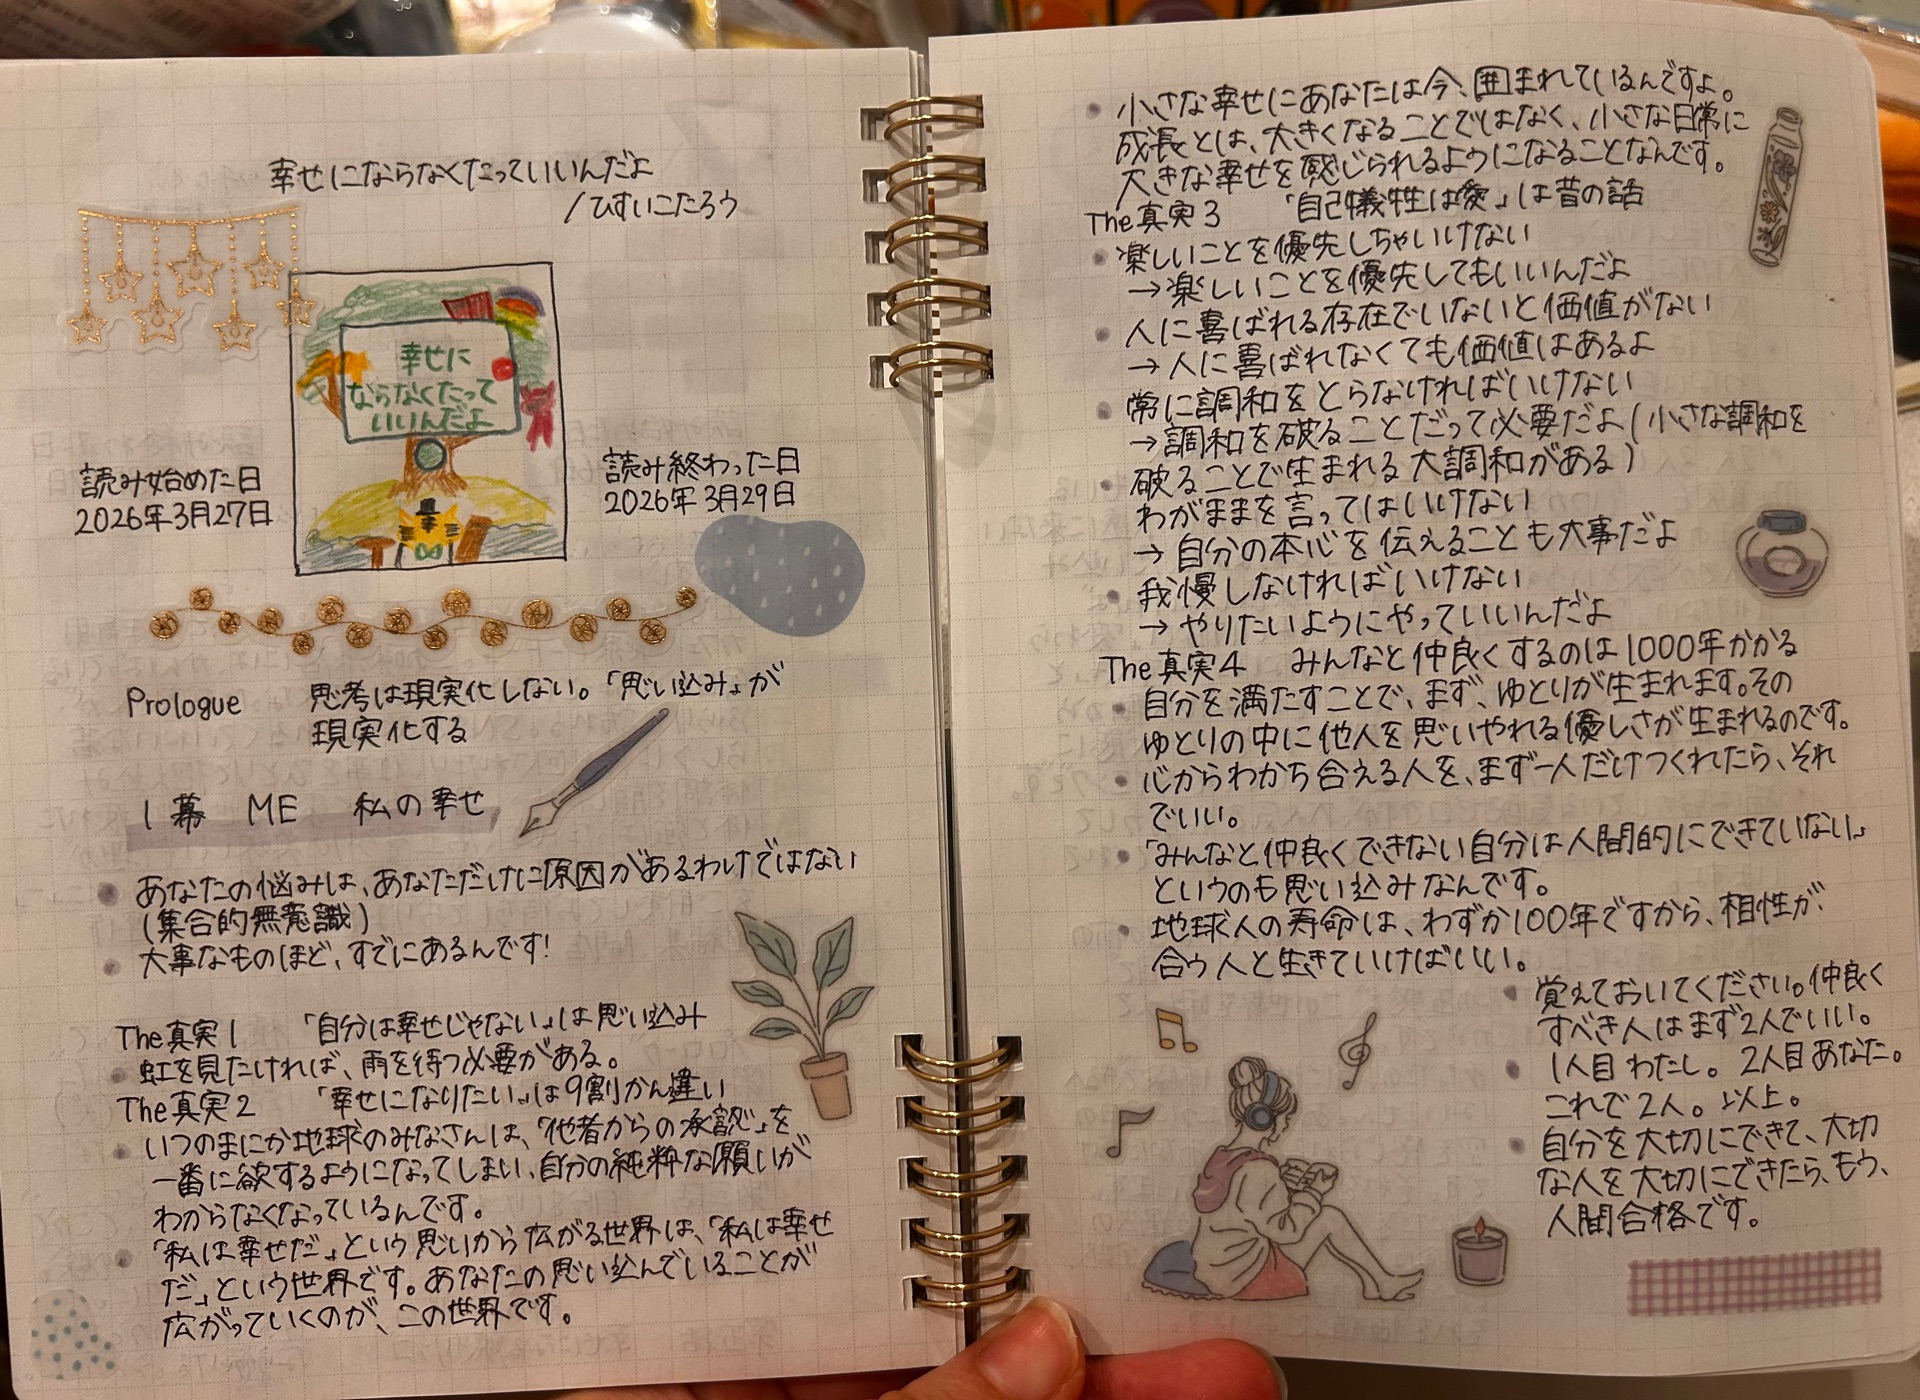 幸せにならなくたっていいんだよ
/ひすいこたろう
幸せに
ならなくたって
いいんだよ
読み始めた日
2026年3月27日
読み終わった日
2026年3月29日
Prologue 思考は現実化しない。「思い込み」が
現実化する
1幕 ME 私の幸せ
・あなたの悩みは、あなただけに原因があるわけではない
(集合的無意識)
・大事なものほど、すでにあるんです!
The真実1 「自分は幸せじゃない」は思い込み
・虹を見たければ、雨を待つ必要がある。
The真実2 「幸せになりたい」は9割かん違い
・いつのまにか地球のみなさんは、「他者からの承認」を
一番に欲するようになってしまい、自分の純粋な願いが
わからなくなっているんです。
・「私は幸せだ」という思いから広がる世界は、「私は幸せ
だ」という世界です。あなたの思い込んでいることが
広がっていくのが、この世界です。
・小さな幸せにあなたは今、囲まれているんですよ。
成長とは、大きくなることではなく、小さな日常に
大きな幸せを感じられるようになることなんです。
The真実3 「自己犠牲は愛」は昔の話
・楽しいことを優先しちゃいけない
→楽しいことを優先してもいいんだよ
・人に喜ばれる存在でいないと価値がない
→人に喜ばれなくても価値はあるよ
・常に調和をとらなければいけない
→調和を破ることだって必要だよ(小さな調和を
・破ることで生まれる大調和がある)
わがままを言ってはいけない
→自分の本心を伝えることも大事だよ
・我慢しなければいけない
→やりたいようにやっていいんだよ
The真実4 みんなと仲良くするのは1000年かかる
・自分を満たすことで、まず、ゆとりが生まれます。その
ゆとりの中に他人を思いやれる優しさが生まれるのです。
・心からわかち合える人を、まず一人だけつくれたら、それ
でいい。
・「みんなと仲良くできない自分は人間的にできていない」
というのも思い込みなんです。
・地球人の寿命は、わずか100年ですから、相性が
合う人と生きていけばいい。
・覚えておいてください。仲良く
すべき人はまず2人でいい。
・1人目わたし。2人目あなた。
これで2人。以上。
・自分を大切にできて、大切
な人を大切にできたら、もう、
人間合格です。